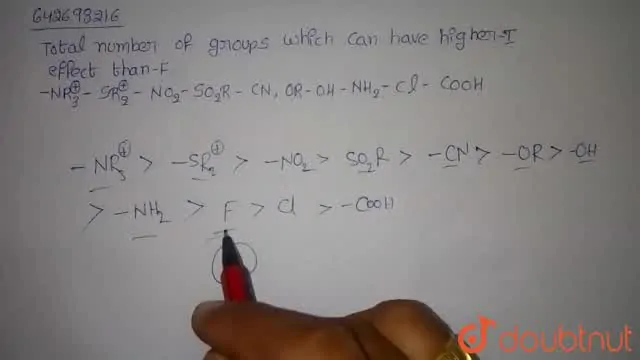 642698216
Total number of groups which can have higher-I
effect than-F
-NR₃⊕- SR₂⊕- NO₂- SO₂R- CN, OR- OH- NH₂- Cl- COOH
-NR₃⊕ > -SR₂⊕ > -NO₂ > SO₂R > -CN > -OR > -OH
> -NH₂ > F > Cl > -COOH
doubtnut